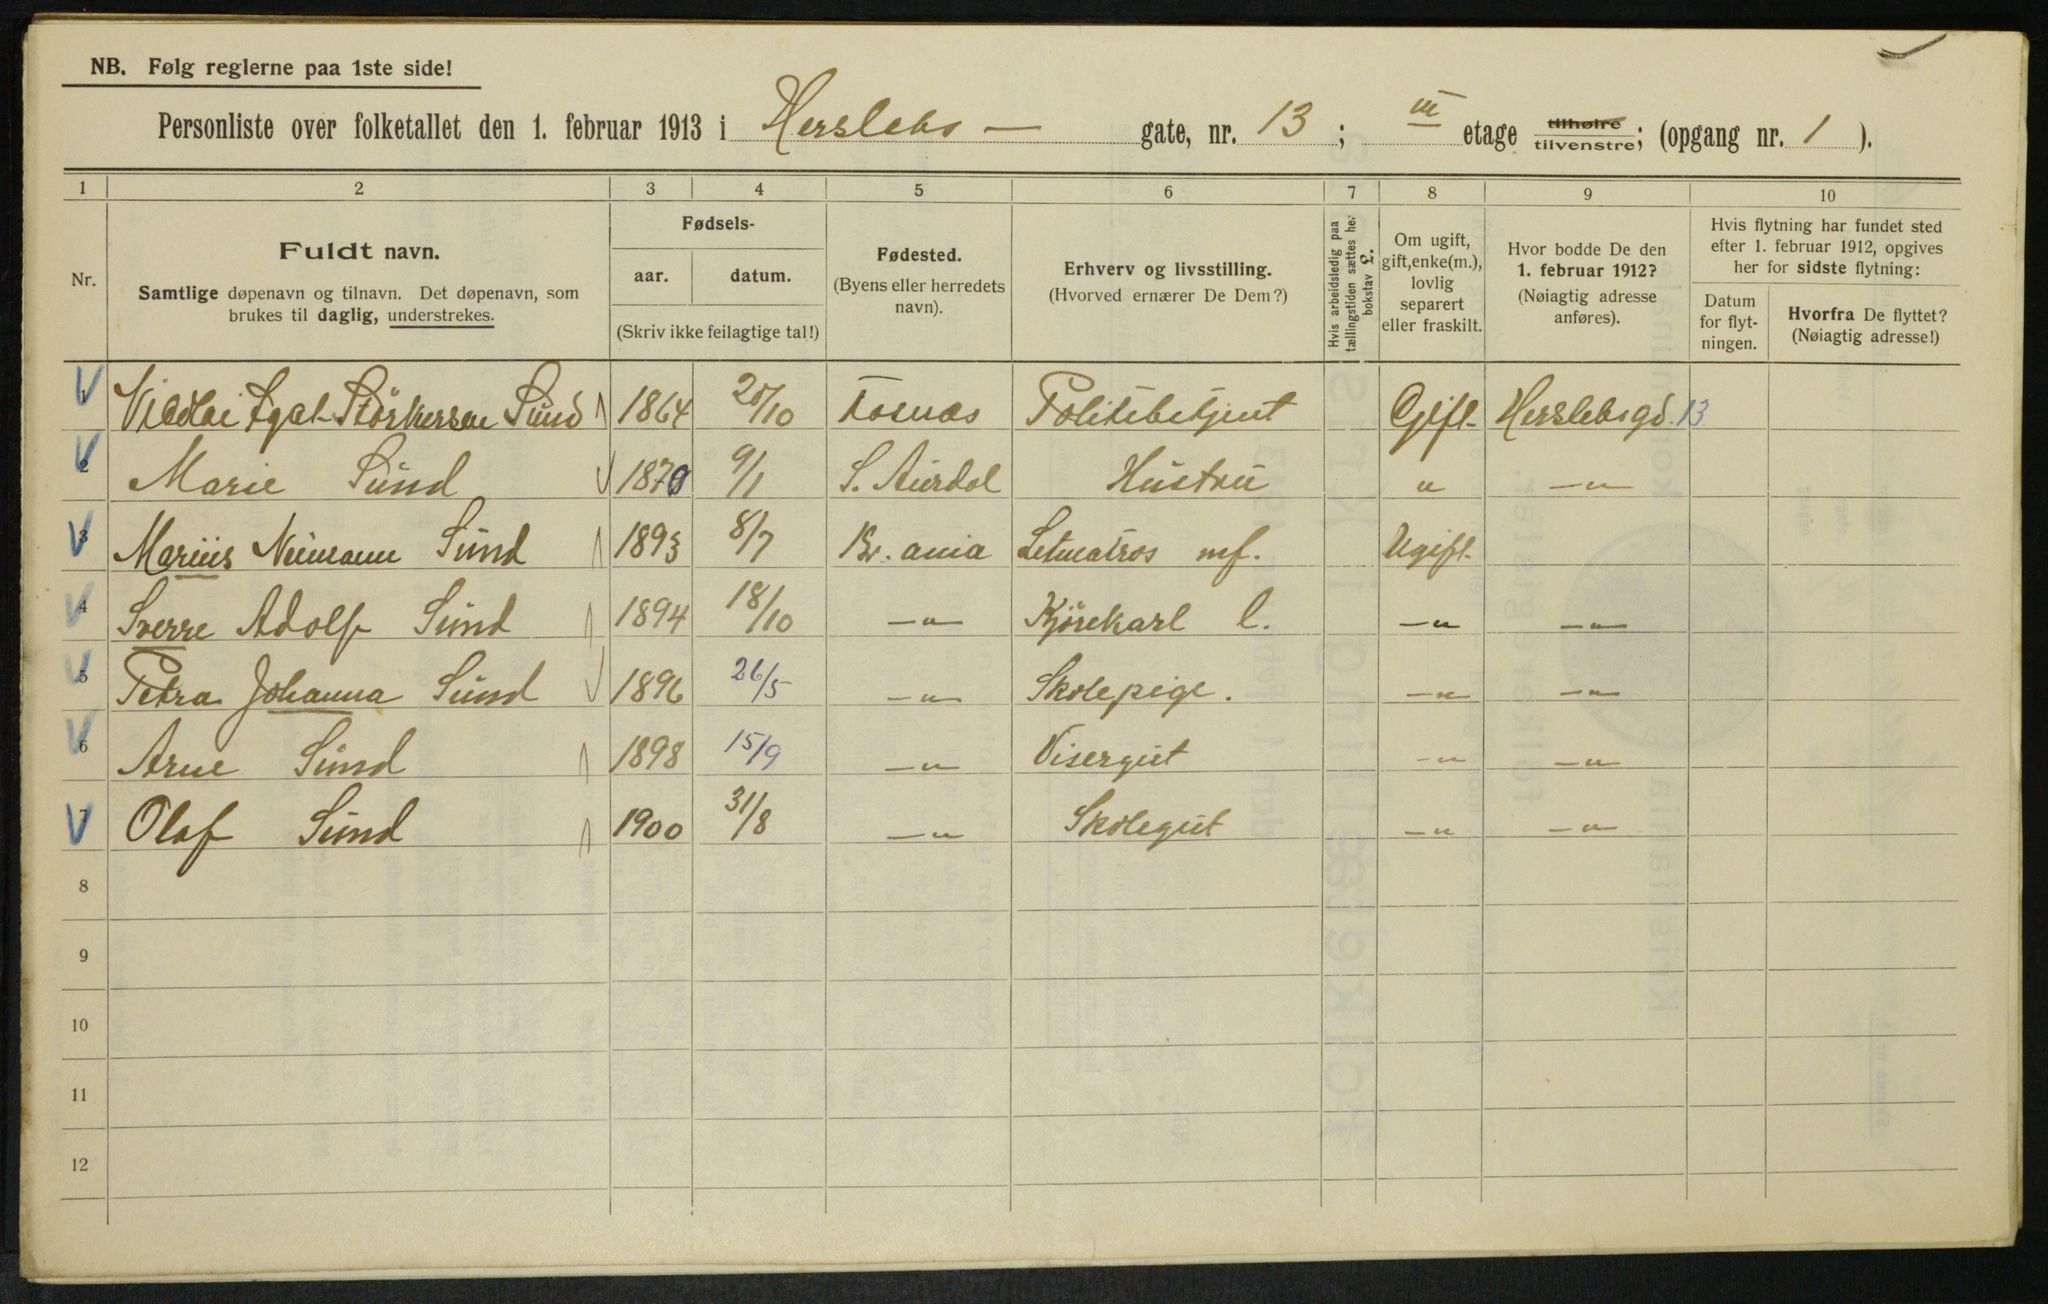 NB. Følg reglerne paa 1ste side!
Personliste over folketallet den 1. februar 1913 i Herslebs — gate, nr. 13 ; III etage tilhøire tilvenstre; (opgang nr. 1 ).
1 2 3 4 5 6 7 8 9 10
Nr.
Fuldt navn.
Samtlige døpenavn og tilnavn. Det døpenavn, som
brukes til daglig, understrekes.
Fødsels-
aar. datum.
(Skriv ikke feilagtige tal!)
Fødested.
(Byens eller herredets
navn).
Erhverv og livsstilling.
(Hvorved ernærer De Dem?)
Hvis arbeidsledig paa
tællingstiden sættes her
bokstav L.
Om ugift,
gift, enke(m.),
lovlig
separert
eller fraskilt.
Hvor bodde De den
1. februar 1912?
(Nøiagtig adresse
anføres).
Hvis flytning har fundet sted
efter 1. februar 1912, opgives
her for sidste flytning:
Datum
for flyt-
ningen.
Hvorfra De flyttet?
(Nøiagtig adresse!)
1 Størkersen Sund 1864 20/10 Fosnæs Politibetjent Gift Herslebsgd. 13
2 Marie Sund 1870 9/1 S. Aurdal Hustru " —"—
3 Marius Neumann Sund 1893 8/7 Kr.ania Letmatros mf. Ugift
4 Sverre Adolf Sund 1894 18/10 —"— Kjørekarl l. —"— —"—
5 Petra Johanna Sund 1896 26/5 —"— Skolepige. —"— —"—
6 Arne Sund 1898 15/9 —"— Visergut —"— —"—
7 Olaf Sund 1900 31/8 —"— Skolegut —"— —"—
8
9
10
11
12